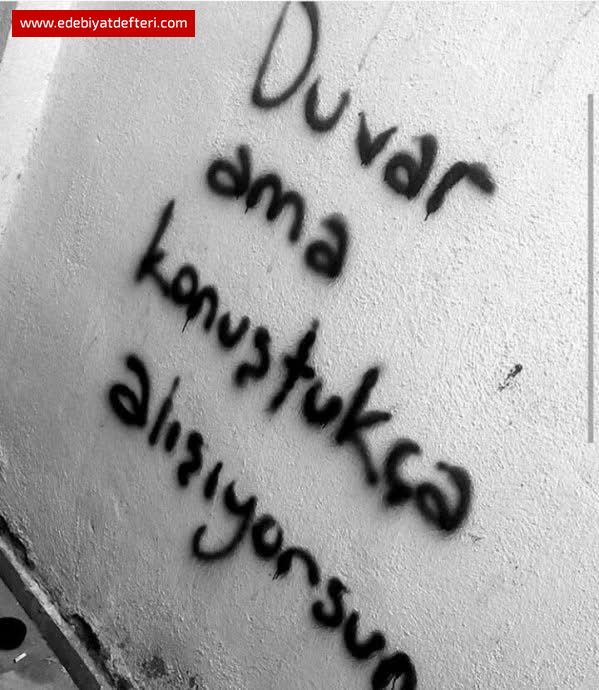 www.edebiyatdefteri.com
Duvar
ama
konuştukça
alışıyorsun